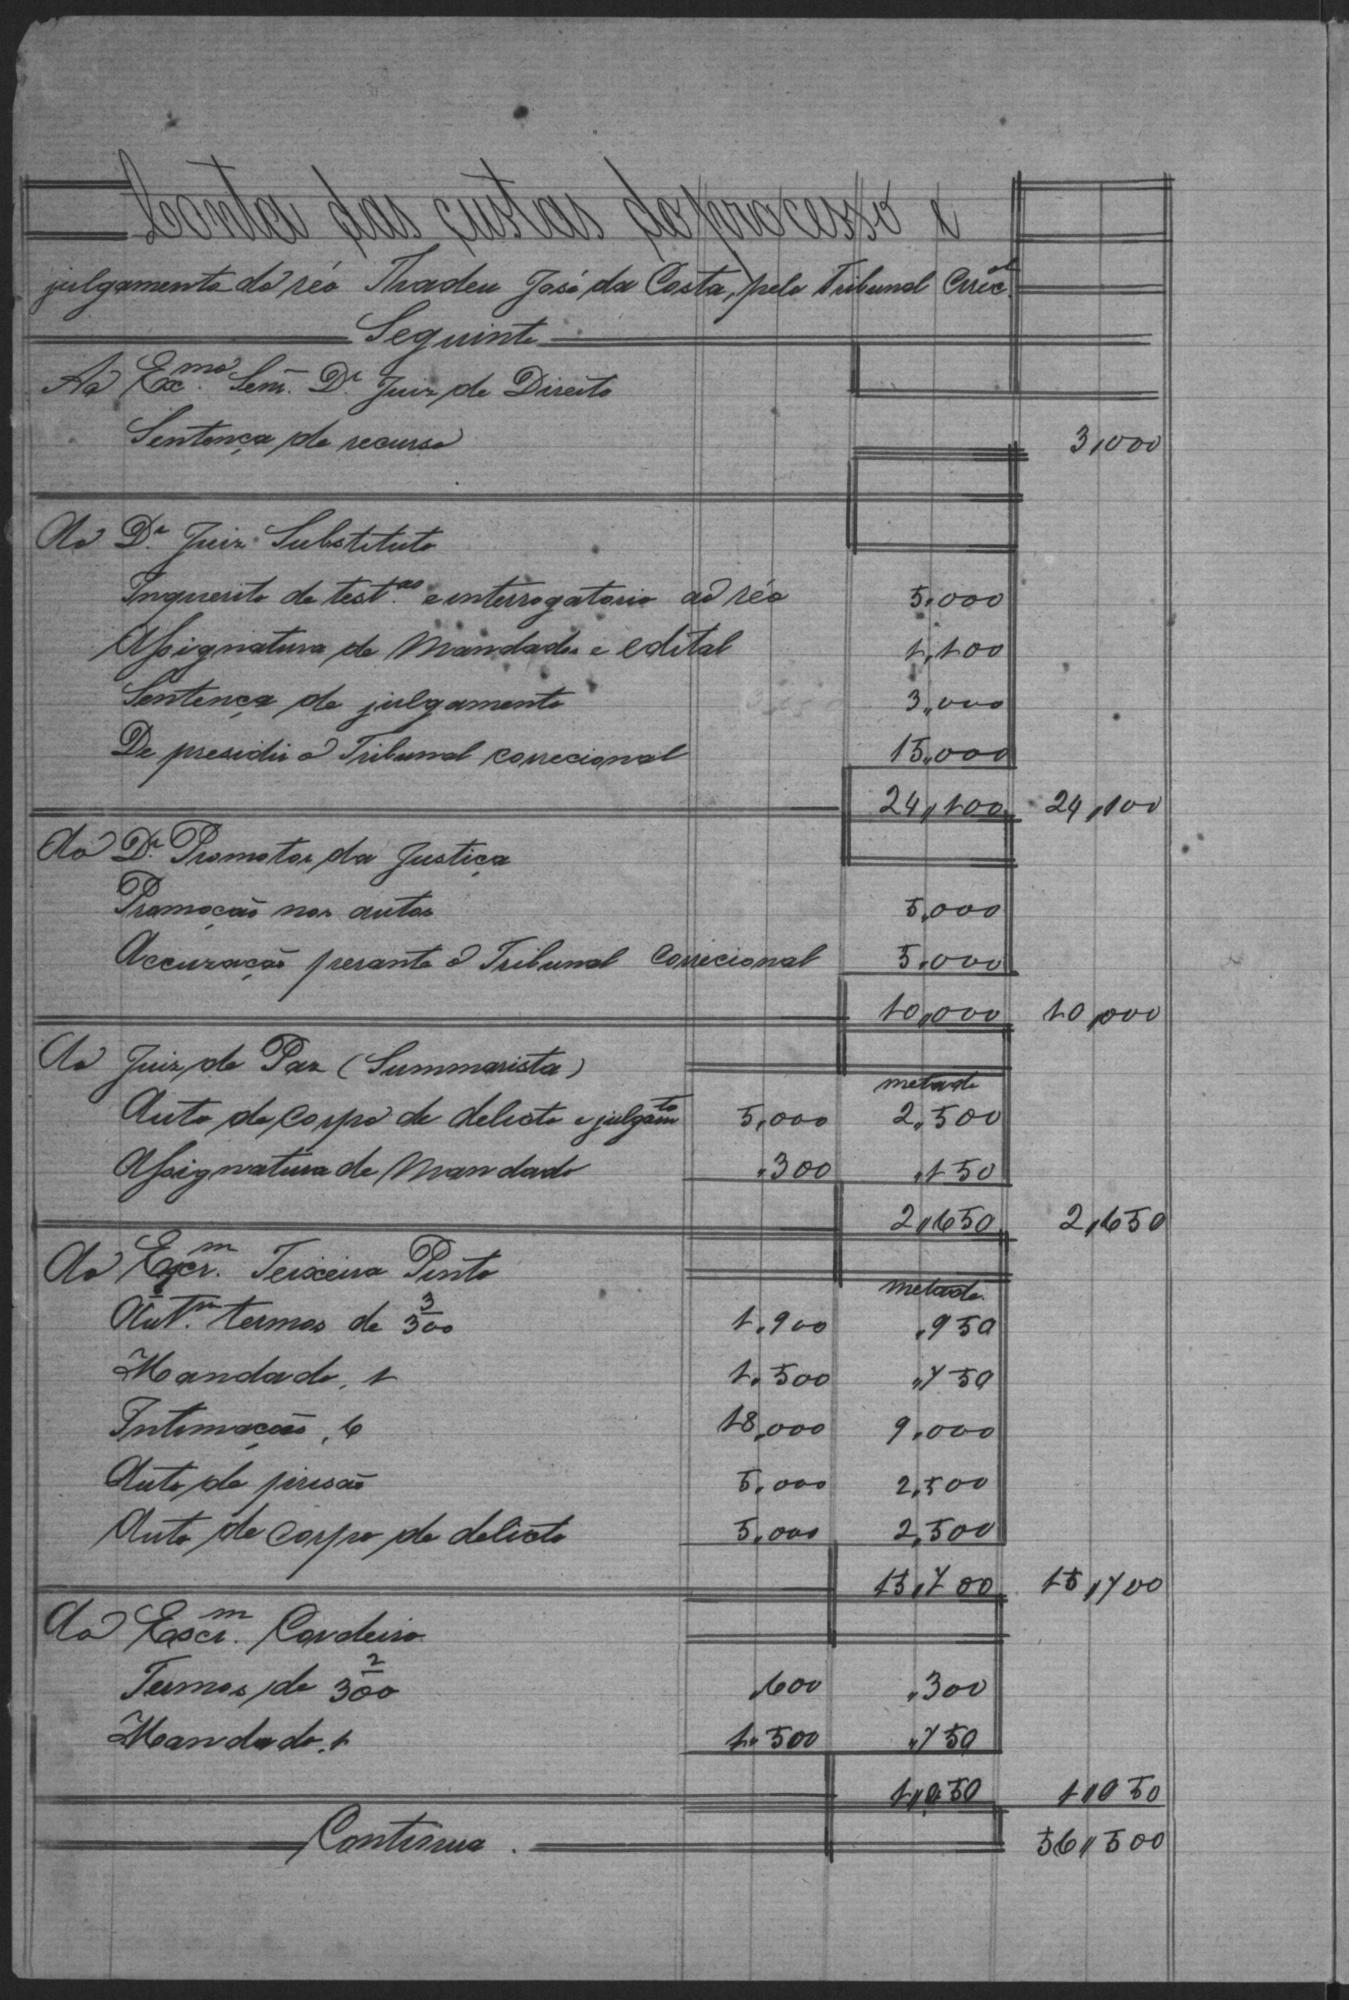 Conta das custas do processo e
julgamento do réo Thadeu José da Costa, pelo Tribunal Corrc.al
Seguinte
Ao Exmo. Senr. Dr. Juiz de Direito
Sentença de recurso 3,000
Ao Dr. Juiz Substituto
Inquerito de test.as e interrogatorio ao réo 5,000
Assignatura de Mandados e edital 1,100
Sentença de julgamento 3,000
De presidir o Tribunal correcional 15,000
24,100 24,100
Ao Dr. Promotor da Justiça
Promoção nos autos 5,000
Accuzação perante o Tribunal Correcional 5,000
10,000 10,000
Ao Juiz de Paz (Summarista)
metade
Auto de corpo de delicto e julgam.to 5,000 2,500
Assignatura de Mandado ,300 ,150
2,650 2,650
Ao Escr.m Teixeira Pinto
metade
Aut.m termos de 3/300 1,900 ,950
Mandado, 1 1,500 ,750
Intimacão, 6 18,000 9,000
Auto de prisão 5,000 2,500
Auto de corpo de delicto 5,000 2,500
15,700 15,700
Ao Escr.m Cordeiro
Termos de 2/300 ,600 ,300
Mandado, 1 1,500 ,750
1,050 1,050
Continua. 56,500